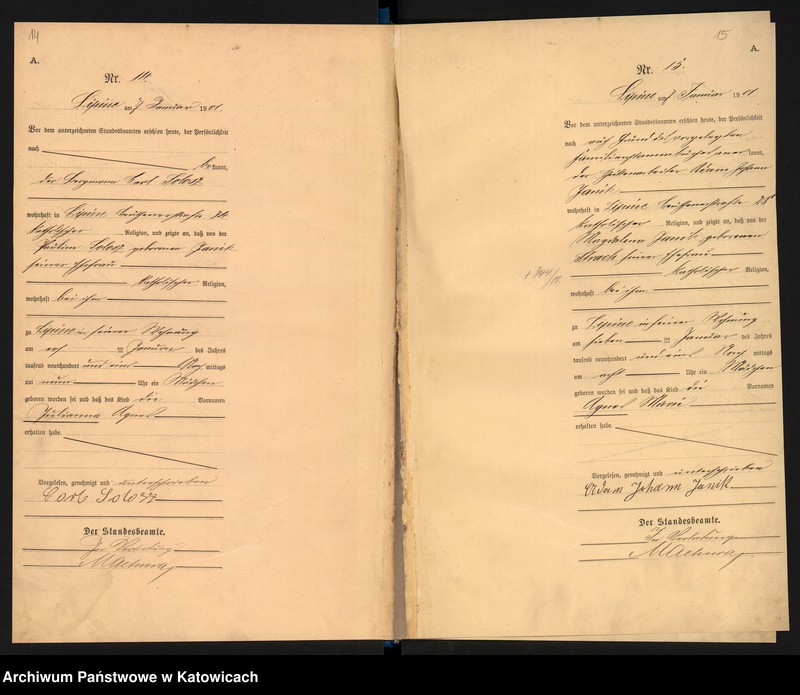 14
A.
Nr. 14.
Lipine am 7 Januar 1901.
Vor dem unterzeichneten Standesbeamten erschien heute, der Persönlichkeit
nach
bekannt,
der Bergmann Carl
wohnhaft in Lipine
katholischer Religion, und zeigte an, daß von der
Pauline geborenen Janik
seiner Ehefrau
katholischer Religion,
wohnhaft bei ihm
zu Lipine in seiner Wohnung
am Januar des Jahres
tausend neunhundert und eins Nachmittags
um neun Uhr ein Mädchen
geboren worden sei und daß das Kind die Vornamen
Julianna Agnes
erhalten habe.
Vorgelesen, genehmigt und unterschrieben
Carl
Der Standesbeamte.
In Vertretung
15
A.
Nr. 15.
Lipine am 7 Januar 1901
Vor dem unterzeichneten Standesbeamten erschien heute, der Persönlichkeit
nach auf Grund des vorgelegten
Familienstammbuches anerkannt,
der Adam Johann
Janik
wohnhaft in Lipine
katholischer Religion, und zeigte an, daß von der
Magdalena Janik geborenen
seiner Ehefrau
katholischer Religion,
wohnhaft bei ihm
zu Lipine in seiner Wohnung
am sieben Januar des Jahres
tausend neunhundert und eins mittags
um acht Uhr ein Mädchen
geboren worden sei und daß das Kind die Vornamen
Agnes Marie
erhalten habe.
Vorgelesen, genehmigt und unterschrieben
Adam Johann Janik
Der Standesbeamte.
In Vertretung
Archiwum Państwowe w Katowicach